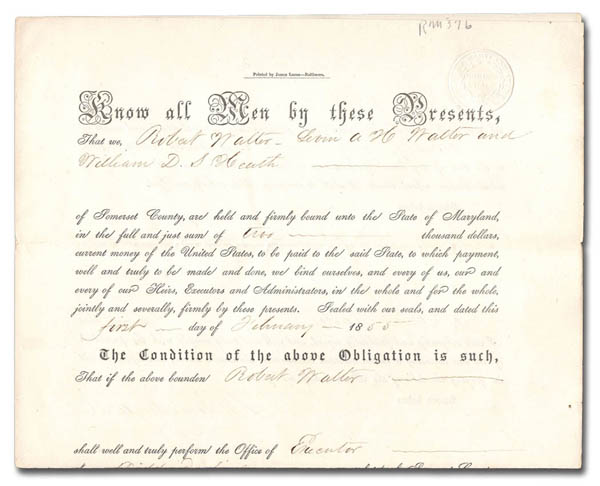 RM 376
Printed by James Lucas—Baltimore.
Know all Men by these Presents,
That we, Robert Walter - Levin A H Walter and
William D. S Heath
of Somerset County, are held and firmly bound unto the State of Maryland,
in the full and just sum of two thousand dollars,
current money of the United States, to be paid to the said State, to which payment,
well and truly to be made and done, we bind ourselves, and every of us, our and
every of our Heirs, Executors and Administrators, in the whole and for the whole,
jointly and severally, firmly by these presents. Sealed with our seals, and dated this
first day of February 1855
The Condition of the above Obligation is such,
That if the above bounden Robert Walter
shall well and truly perform the Office of Executor